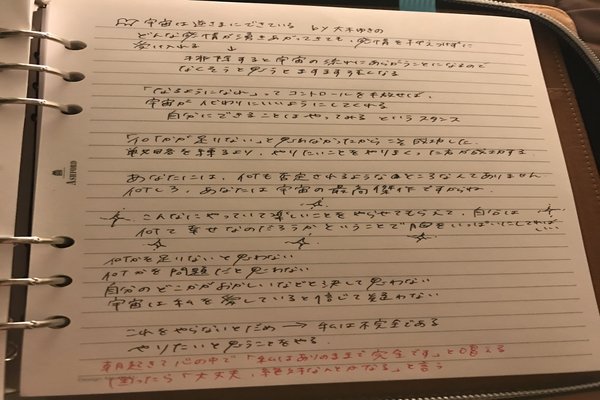 宇宙は逆さまにできている by 大木ゆきの
どんな感情が湧きあがってきても、感情を抑えつけずに
受け入れる ↓
排除すると宇宙の流れにあらがうことになるので
なくそうと思うとますます強くなる
「なるようになれ」ってコントロールを手放せば、
宇宙が代わりにいいようにしてくれる
自分にできることはやってみる というスタンス
「何かが足りない」と思わなかったからこそ成功した
をするより、やりたいことをやりまくった方が成功する
あなたには、何も否定されるようなところなんてありません
何しろ、あなたは宇宙の最高傑作ですからね
こんなにやっていて楽しいことをやらせてもらえて、自分は
何て幸せなのだろうかということで胸をいっぱいにしてればいい
何かを足りないと思わない
何かを問題だと思わない
自分のどこかがおかしいなどと決して思わない
宇宙は私を愛していると信じて疑わない
これをやらないとだめ → 私は不完全である
やりたいと思うことをやる
朝起きて心の中で「私はありのままで完全です」と唱える
困ったら「大丈夫、絶対なんとかなる」と言う
ASHFORD